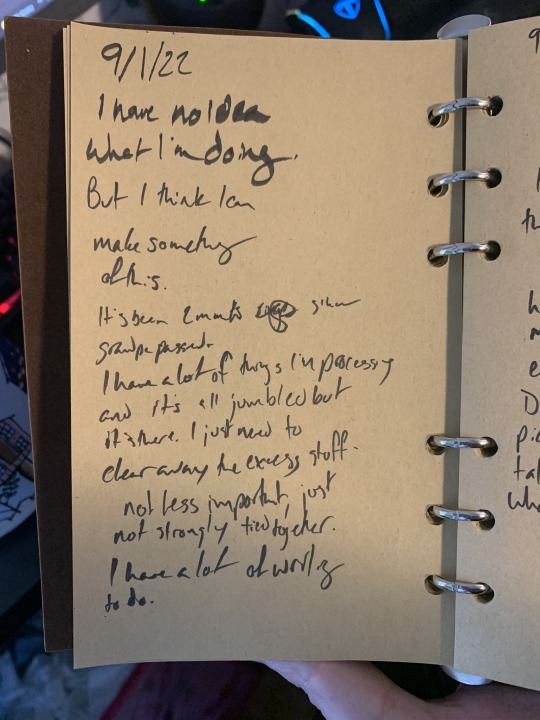 9/1/22
I have no idea
what I'm doing.
But I think I can
make something
of this.
It's been 2 months since
grandpa passed.
I have a lot of things I'm processing
and it's all jumbled but
it's there. I just need to
clear away the excess stuff.
not less important, just
not strongly tied together.
I have a lot of
to do.
9
th
h
e
D
pic
tal
wh